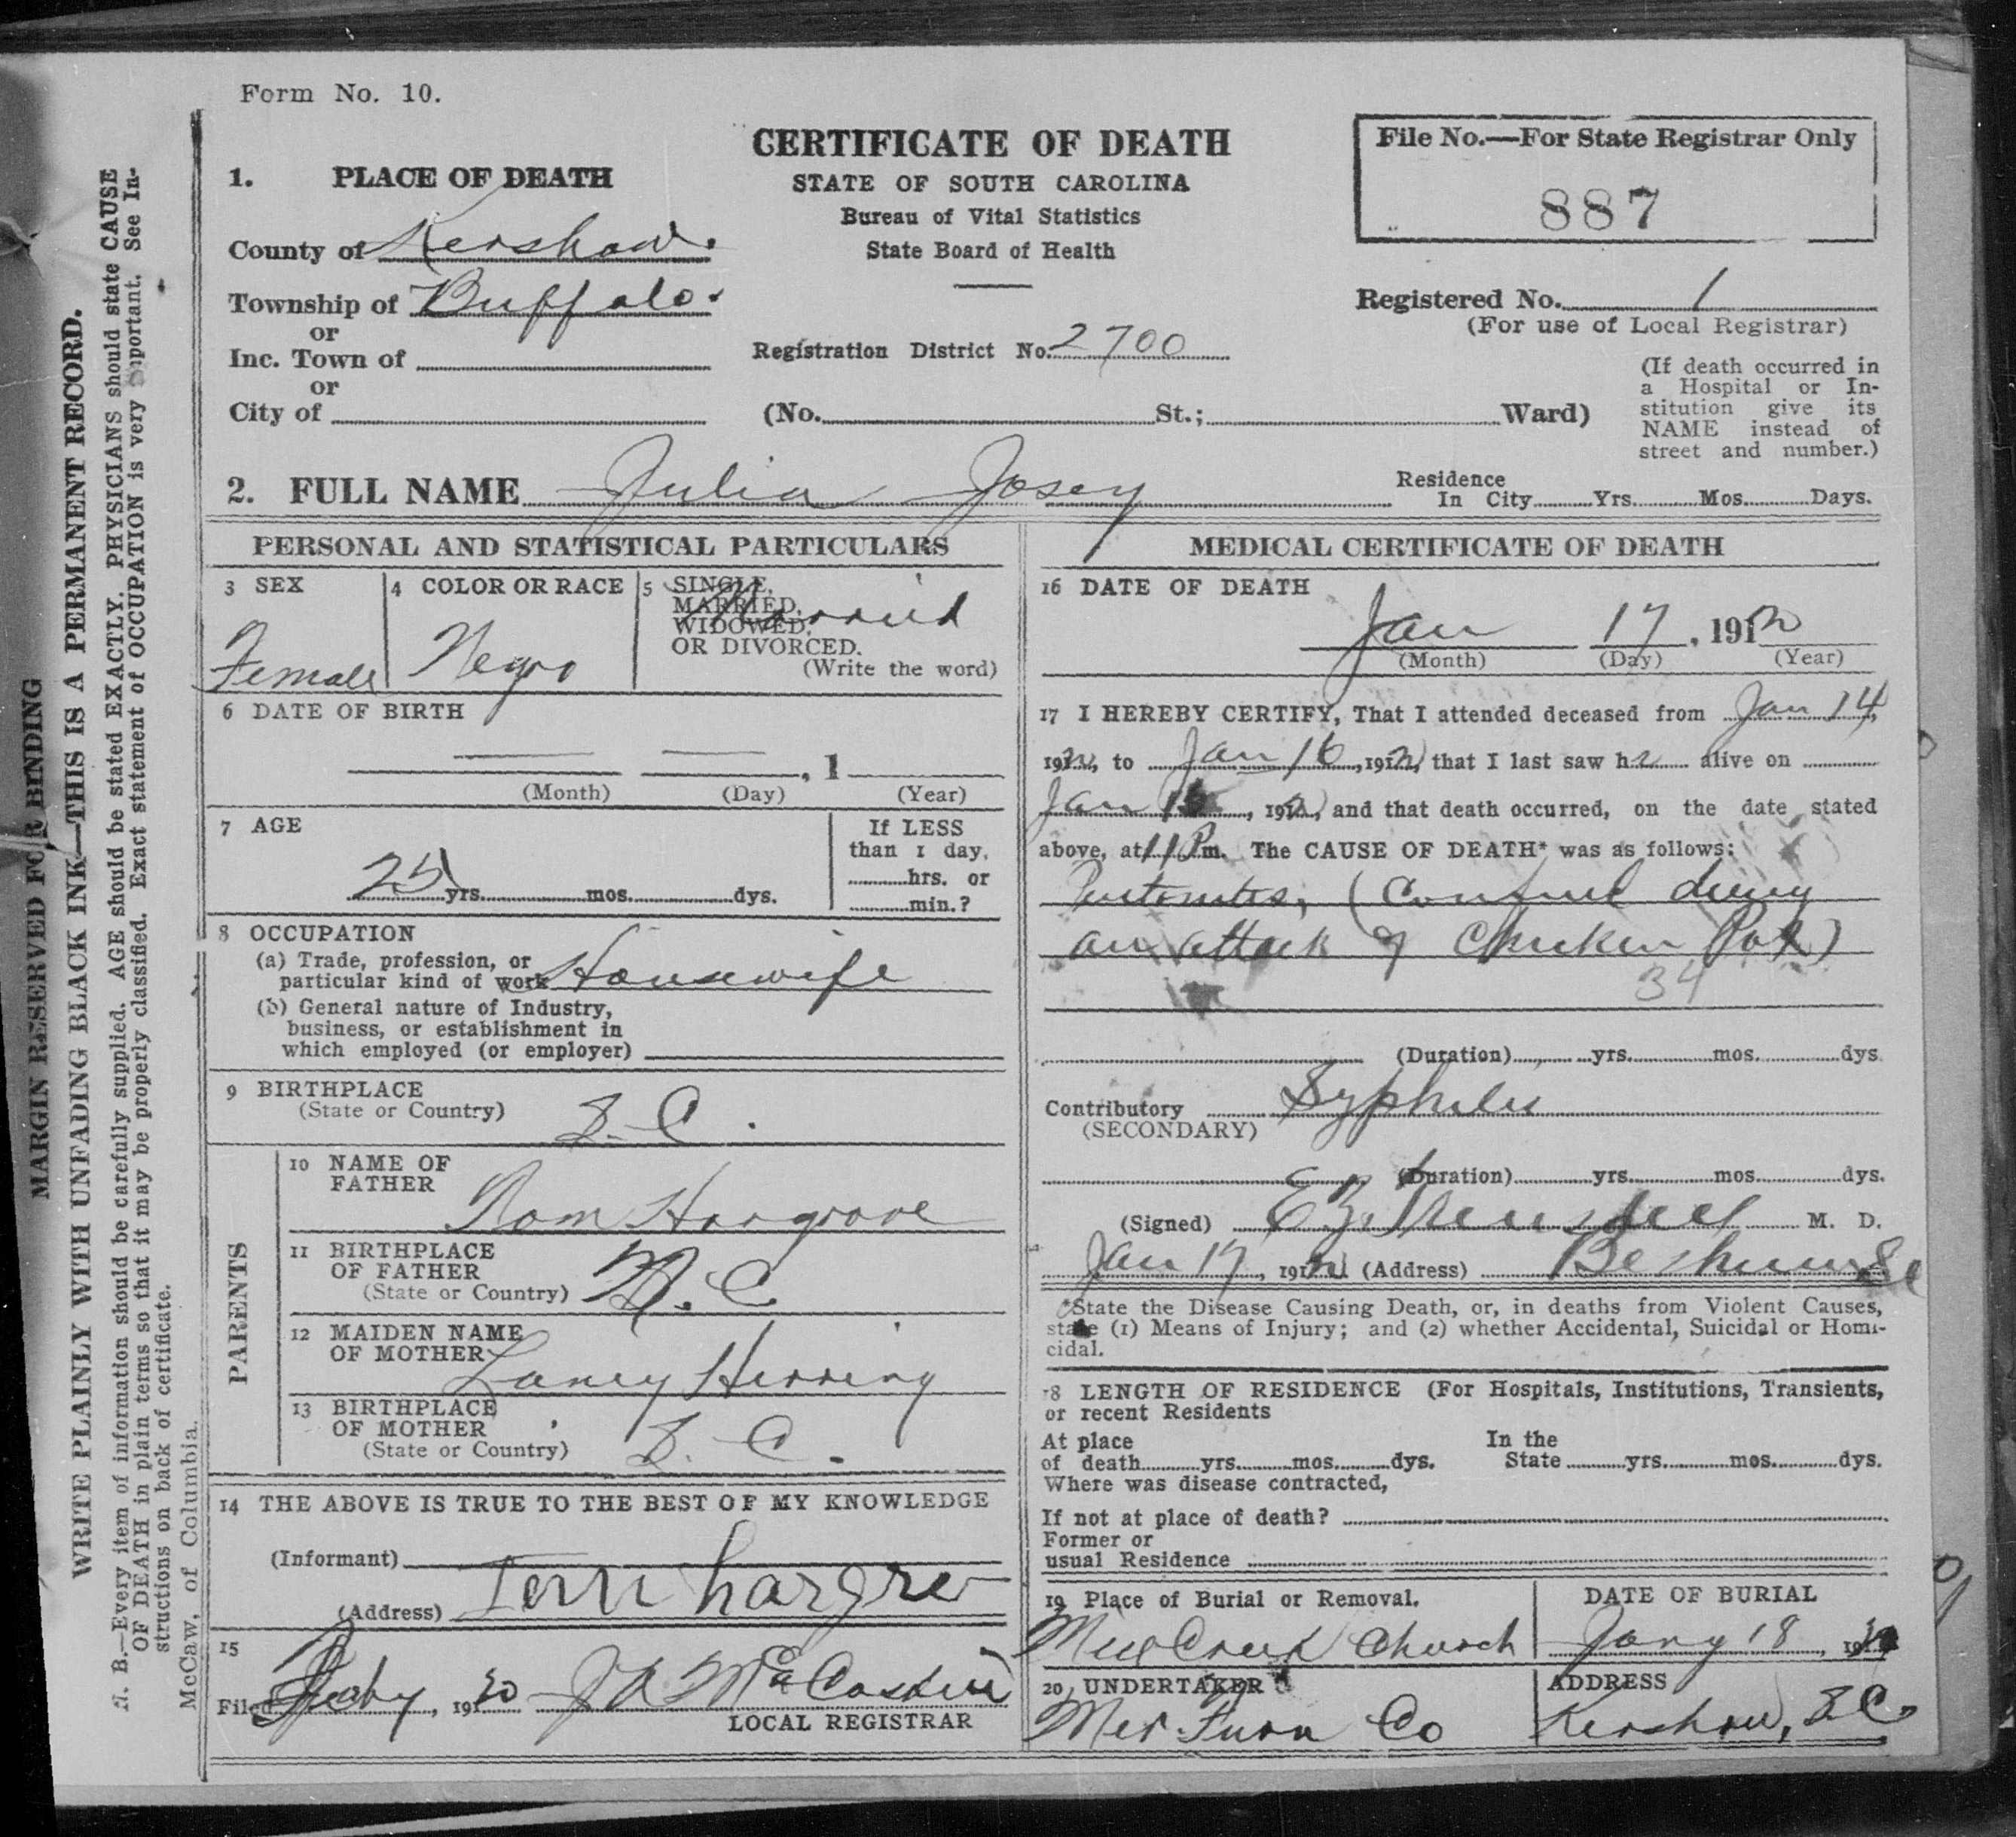 Form No. 10.
CERTIFICATE OF DEATH
STATE OF SOUTH CAROLINA
Bureau of Vital Statistics
State Board of Health
File No.—For State Registrar Only
887
1. PLACE OF DEATH
County of Kershaw.
Township of Buffalo.
or
Inc. Town of
or
City of
Registration District No. 2700
Registered No. 1
(For use of Local Registrar)
(No. St.; Ward)
(If death occurred in
a Hospital or In-
stitution give its
NAME instead of
street and number.)
2. FULL NAME Julia Josey
Residence
In City Yrs. Mos. Days.
PERSONAL AND STATISTICAL PARTICULARS
3 SEX
Female
4 COLOR OR RACE
Negro
5 SINGLE,
MARRIED,
WIDOWED,
OR DIVORCED.
(Write the word)
Married
6 DATE OF BIRTH
, 1
(Month) (Day) (Year)
7 AGE
25 yrs. mos. dys.
If LESS
than 1 day,
hrs. or
min.?
8 OCCUPATION
(a) Trade, profession, or
particular kind of work Housewife
(b) General nature of Industry,
business, or establishment in
which employed (or employer)
9 BIRTHPLACE
(State or Country) S. C.
PARENTS
10 NAME OF
FATHER
Hargrove
11 BIRTHPLACE
OF FATHER
(State or Country) N. C.
12 MAIDEN NAME
OF MOTHER
Laney Herring
13 BIRTHPLACE
OF MOTHER
(State or Country) S. C.
14 THE ABOVE IS TRUE TO THE BEST OF MY KNOWLEDGE
(Informant)
(Address)
15
Filed , 1920 McCaskill
LOCAL REGISTRAR
MEDICAL CERTIFICATE OF DEATH
16 DATE OF DEATH
Jan 17, 191
(Month) (Day) (Year)
17 I HEREBY CERTIFY, That I attended deceased from Jan 14,
191 , to Jan 16, 191 , that I last saw her alive on
Jan 16, 191 , and that death occurred, on the date stated
above, at 11 P m. The CAUSE OF DEATH* was as follows:
during
an attack of Chicken Pox)
34
(Duration) yrs. mos. dys.
Contributory Syphilis
(SECONDARY)
(Duration) yrs. mos. dys.
(Signed) M. D.
Jan 17, 191 (Address) Bethune SC
*State the Disease Causing Death, or, in deaths from Violent Causes,
state (1) Means of Injury; and (2) whether Accidental, Suicidal or Homi-
cidal.
18 LENGTH OF RESIDENCE (For Hospitals, Institutions, Transients,
or recent Residents
At place
of death yrs. mos. dys.
In the
State yrs. mos. dys.
Where was disease contracted,
If not at place of death?
Former or
usual Residence
19 Place of Burial or Removal.
Creek Church
DATE OF BURIAL
Jany 18, 19
20 UNDERTAKER
Mer. Furn Co
ADDRESS
Kershaw, S.C.
MARGIN RESERVED FOR BINDING
WRITE PLAINLY WITH UNFADING BLACK INK—THIS IS A PERMANENT RECORD.
N. B.—Every item of information should be carefully supplied. AGE should be stated EXACTLY. PHYSICIANS should state CAUSE
OF DEATH in plain terms so that it may be properly classified. Exact statement of OCCUPATION is very important. See In-
structions on back of certificate.
McCaw, of Columbia.